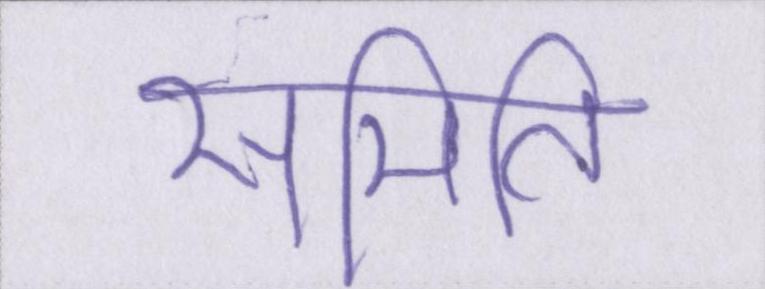 समिति